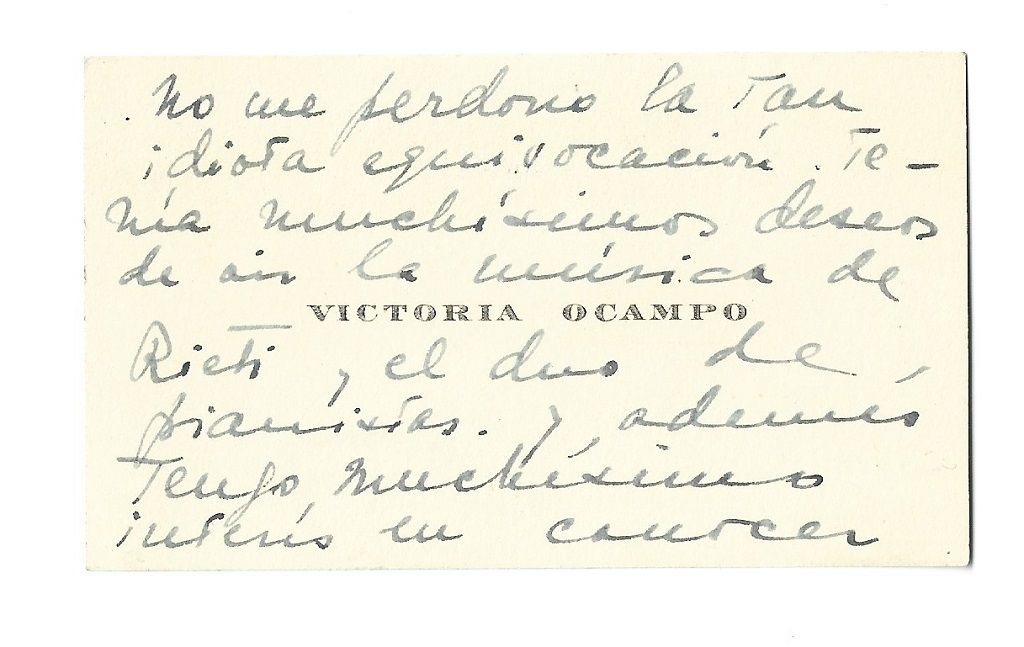 No me perdono la tan
idiota equivocación. Te-
nía muchísimos deseos
de oir la música de
VICTORIA OCAMPO
Rieti y el duo de
pianistas. Y, además
Tengo muchísimo
interés en conocer